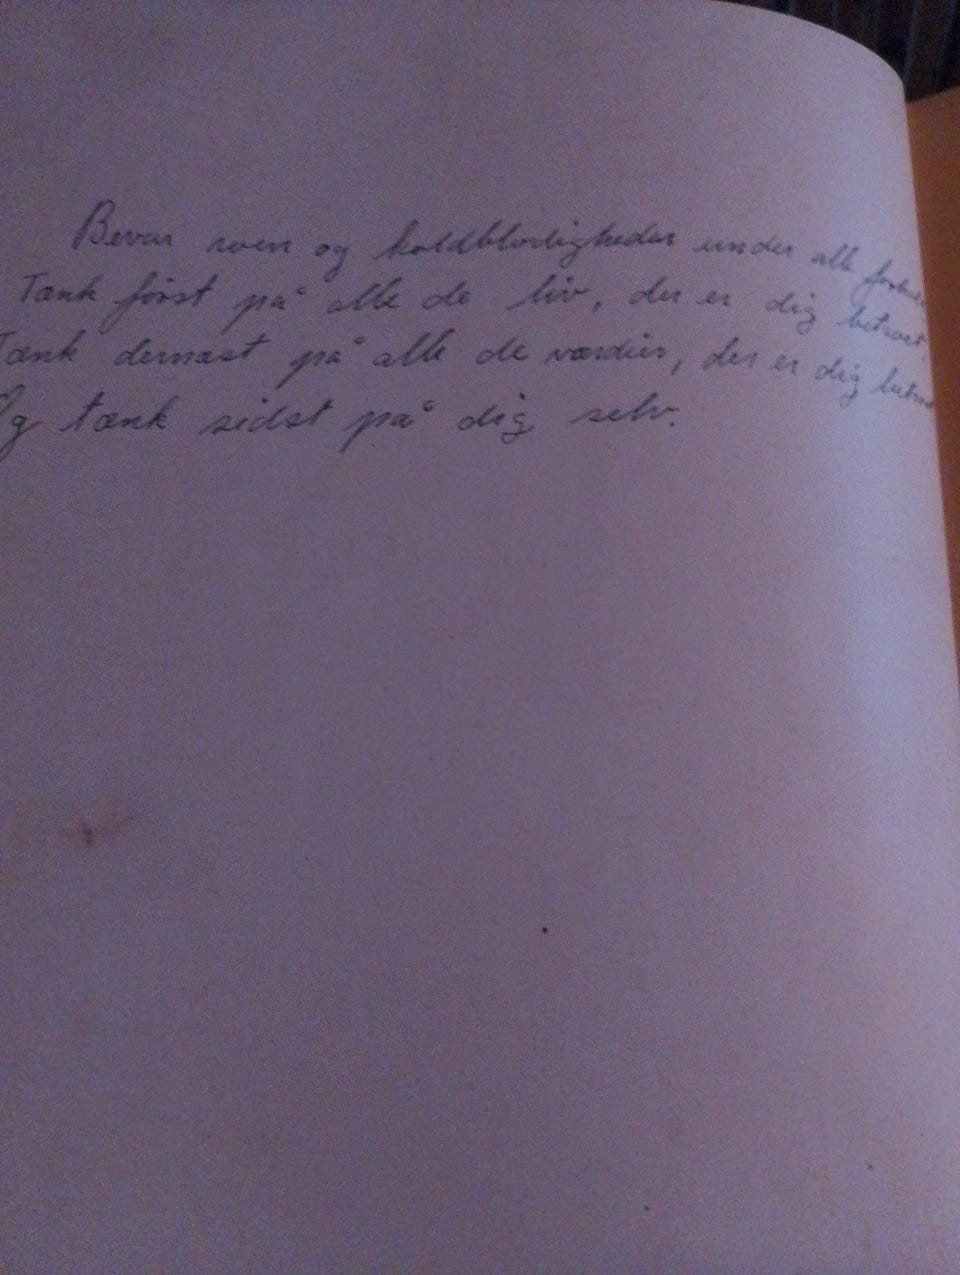 Bevar roen og koldblodigheden under alle
Tænk først på alle de liv, der er dig betroet.
Tænk dernæst på alle de værdier, der er dig
Og tænk sidst på dig selv.